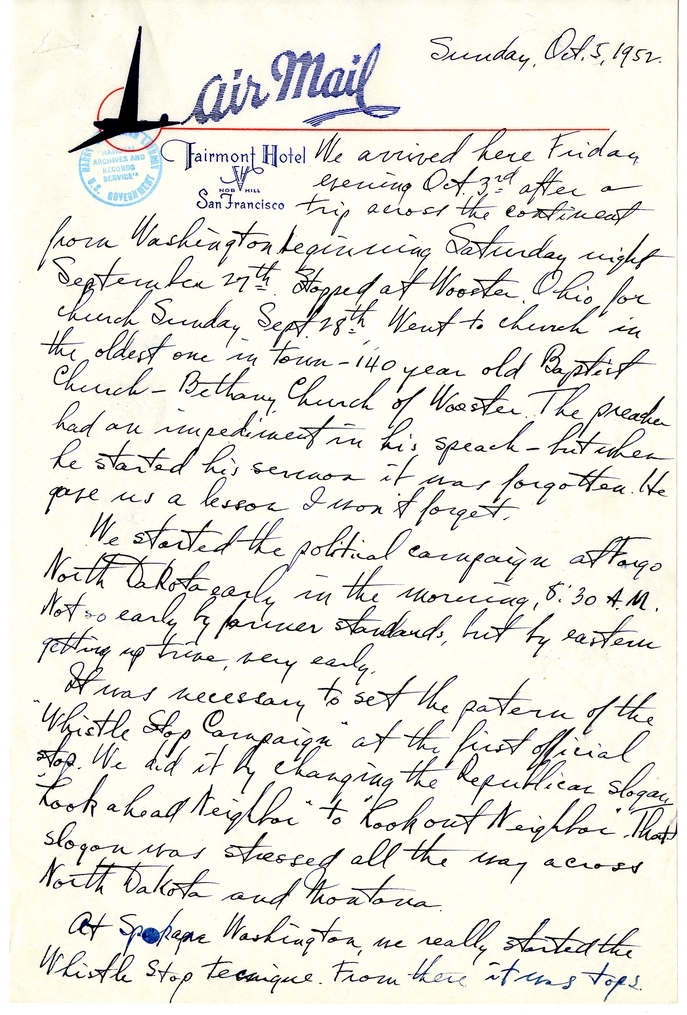 Sunday, Oct. 5, 1952.
Air Mail
NATIONAL
ARCHIVES AND
RECORDS
SERVICE
U.S. GOVERNMENT
Fairmont Hotel
NOB HILL
San Francisco
We arrived here Friday
evening Oct. 3rd after a
trip across the continent
from Washington beginning Saturday night
September 27th. Stopped at Wooster, Ohio for
church Sunday Sept. 28th. Went to church in
the oldest one in town - 140 year old Baptist
Church - Bethany Church of Wooster. The preacher
had an impediment in his speach - but when
he started his sermon it was forgotten. He
gave us a lesson I won't forget.
We started the political campaign at Fargo
North Dakota early in the morning, 8:30 A.M.
Not so early by farmer standards, but by eastern
getting up time, very early.
It was necessary to set the patern of the
"Whistle Stop Campaign" at the first official
stop. We did it by changing the Republican slogan
"Look ahead Neighbor" to "Look out Neighbor". That
slogan was stressed all the way across
North Dakota and Montana.
At Spokane Washington, we really started the
Whistle Stop tecnique. From there it was tops.